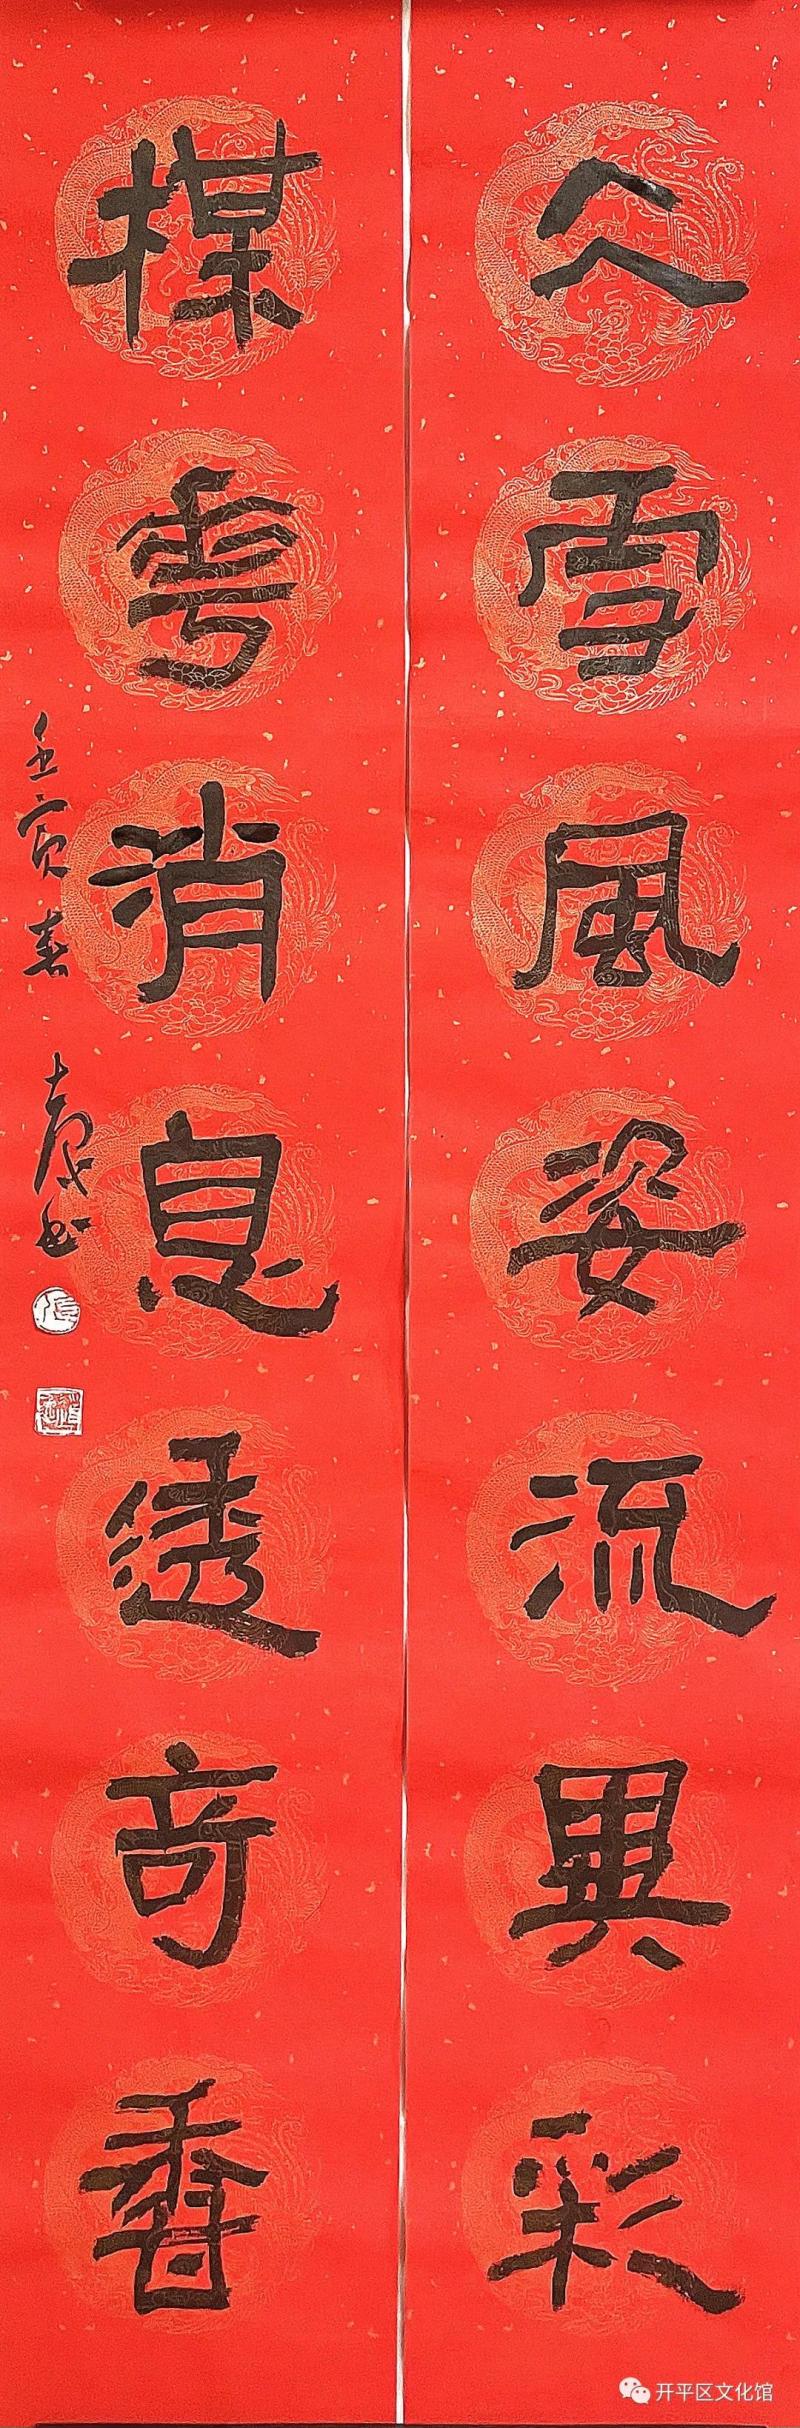 仌雪風姿流異彩
楳𠌶消息透奇香
壬寅春
开平区文化馆